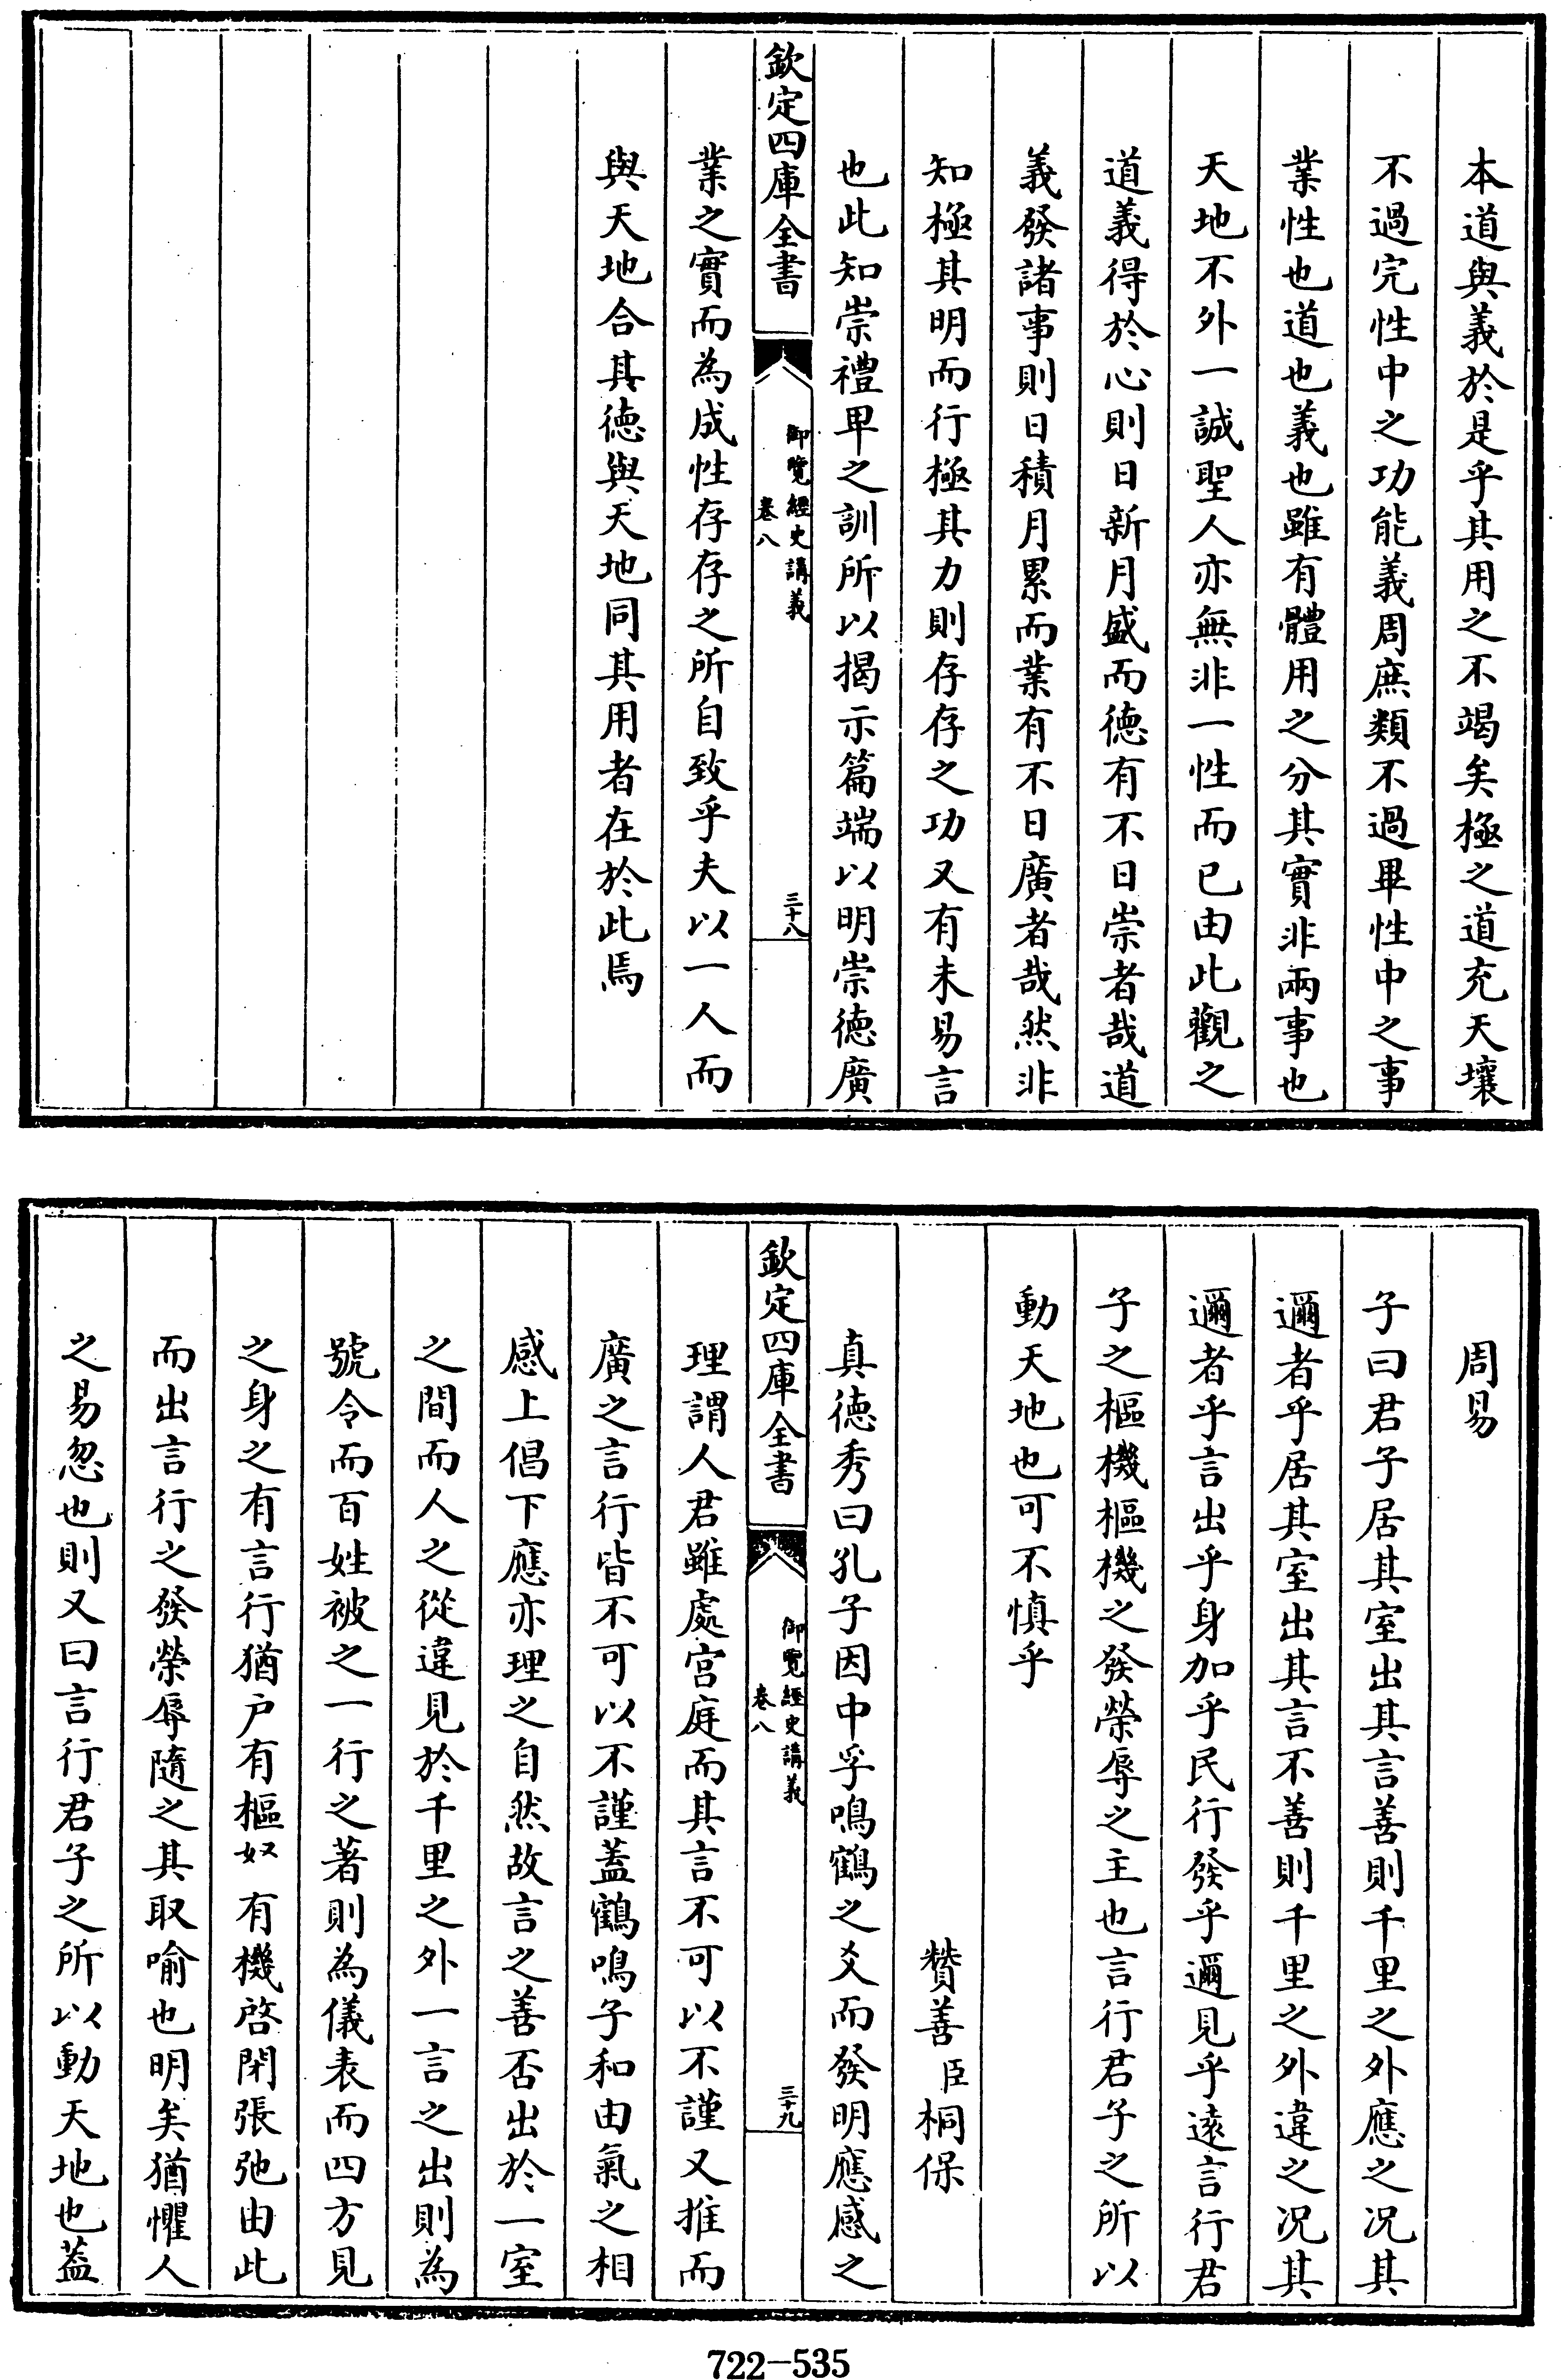 本道與義於是乎其用之不竭矣極之道充天壤
不過完性中之功能義周庶類不過畢性中之事
業性也道也義也雖有體用之分其實非兩事也
天地不外一誠聖人亦無非一性而已由此觀之
道義得於心則日新月盛而德有不日崇者哉道
義發諸事則日積月累而業有不日廣者哉然非
知極其明而行極其力則存存之功又有未易言
也此知崇禮卑之訓所以揭示篇端以明崇德廣
欽定四庫全書
御覽經史講義
卷八
三十八
業之實而為成性存存之所自致乎夫以一人而
與天地合其德與天地同其用者在於此焉
周易
子曰君子居其室出其言善則千里之外應之况其
邇者乎居其室出其言不善則千里之外違之况其
邇者乎言出乎身加乎民行發乎邇見乎遠言行君
子之樞機樞機之發榮辱之主也言行君子之所以
動天地也可不慎乎
贊善臣桐保
真德秀曰孔子因中孚鳴鶴之爻而發明應感之
欽定四庫全書
御覽經史講義
卷八
三十九
理謂人君雖處宫庭而其言不可以不謹又推而
廣之言行皆不可以不謹蓋鶴鳴子和由氣之相
感上倡下應亦理之自然故言之善否出於一室
之間而人之從違見於千里之外一言之出則為
號令而百姓被之一行之著則為儀表而四方見
之身之有言行猶户有樞弩有機啓閉張弛由此
而出言行之發榮辱隨之其取喻也明矣猶懼人
之易忽也則又曰言行君子之所以動天地也蓋
722-535